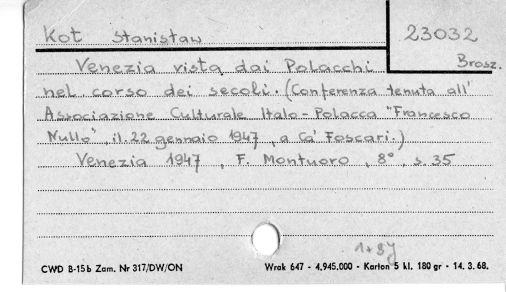 Kot Stanisław 23032
Brosz.
Venezia vista dai Polacchi
nel corso dei secoli. (Conferenza tenuta all'
Associazione Culturale Italo-Polacca "Francesco
Nullo", il 22 gennaio 1947, a Ca' Foscari.)
Venezia 1947, F. Montuoro, 8°, s. 35
CWD B-15b Zam. Nr 317/DW/ON Wrak 647 - 4.945.000 - Karton 5 kl. 180 gr - 14. 3. 68.